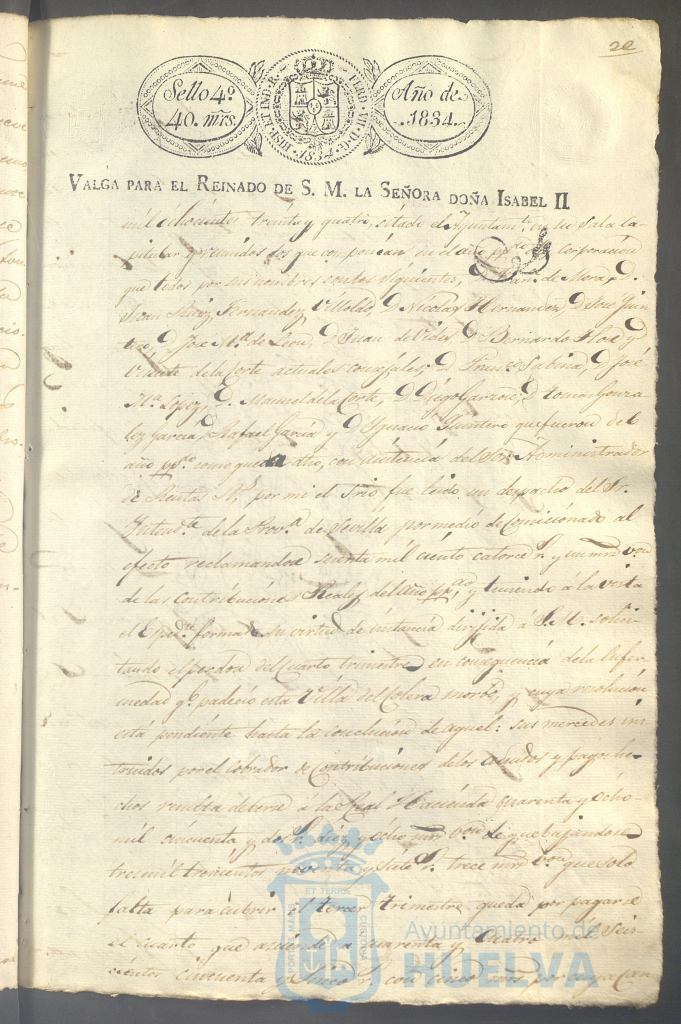 22
Sello 4º
40. mrs.
HISP. ET IND. R. FERD. VII. D. G. 1834
Año de
1834.
VALGA PARA EL REINADO DE S. M. LA SEÑORA DOÑA ISABEL II
mil ochocientos treinta y quatro, citado el Ayuntamto. en su Sala Ca-
pitular y reunidos los que componian en el año Corporacion
que todos por sus nombres son los siguientes, de Mora, D.
Juan Fernandez Villoldo, D Nicolas Hernandez, D José Quin
tero, D Jose Ma. de Leon, D Juan de Vides D Bernardo y D
Vicente de la Corte actuales concejales; D Franco. Sabina, D José
Ma. Lopez, D. Manuel de la Corte, D Diego Garzon, D Tomas Gonza-
lez Garcia, D Rafael Garcia y D Ignacio Quintero que fueron del
año ppdo. como queda dho, con asistencia del Sor. Administrador
de Rentas Rs. por mi el Srio, fue leido un despacho del Sr.
Intendte. de la Prova. de Sevilla por medio de Comicionado al
efecto reclamandose mil ciento catorce rs. y un mrs von
de las Contribuciones Reales del año ppdo, y teniendo á la vista
el Espedte. formado en virtud de instancia dirijida á S. M. solici
tando el perdon del cuarto trimestre en consequencia de la Enfer-
medad qe. padecio esta Villa del Colera morbo, y cuya resolucion
está pendiente hasta la conclusion de aquel: sus mercedes ins
truidos por el Cobrador de Contribuciones de los y pagos he-
chos resulta deberse á la Real Hacienda quarenta y ocho
mil cincuenta y dos rs. diez y ocho mrs von de que bajandose
tres mil trescientos noventa y siete rs. trece mrs von que solo
falta para cubrir el tercer trimestre queda por pagarse
el cuarto que asciende a quarenta y cuatro mil seis
cientos cincuenta y cinco rs. con cinco mrs por cuya can
ET TERRA
PORTUS MARIS
CUSTODIA
Ayuntamiento de
HUELVA